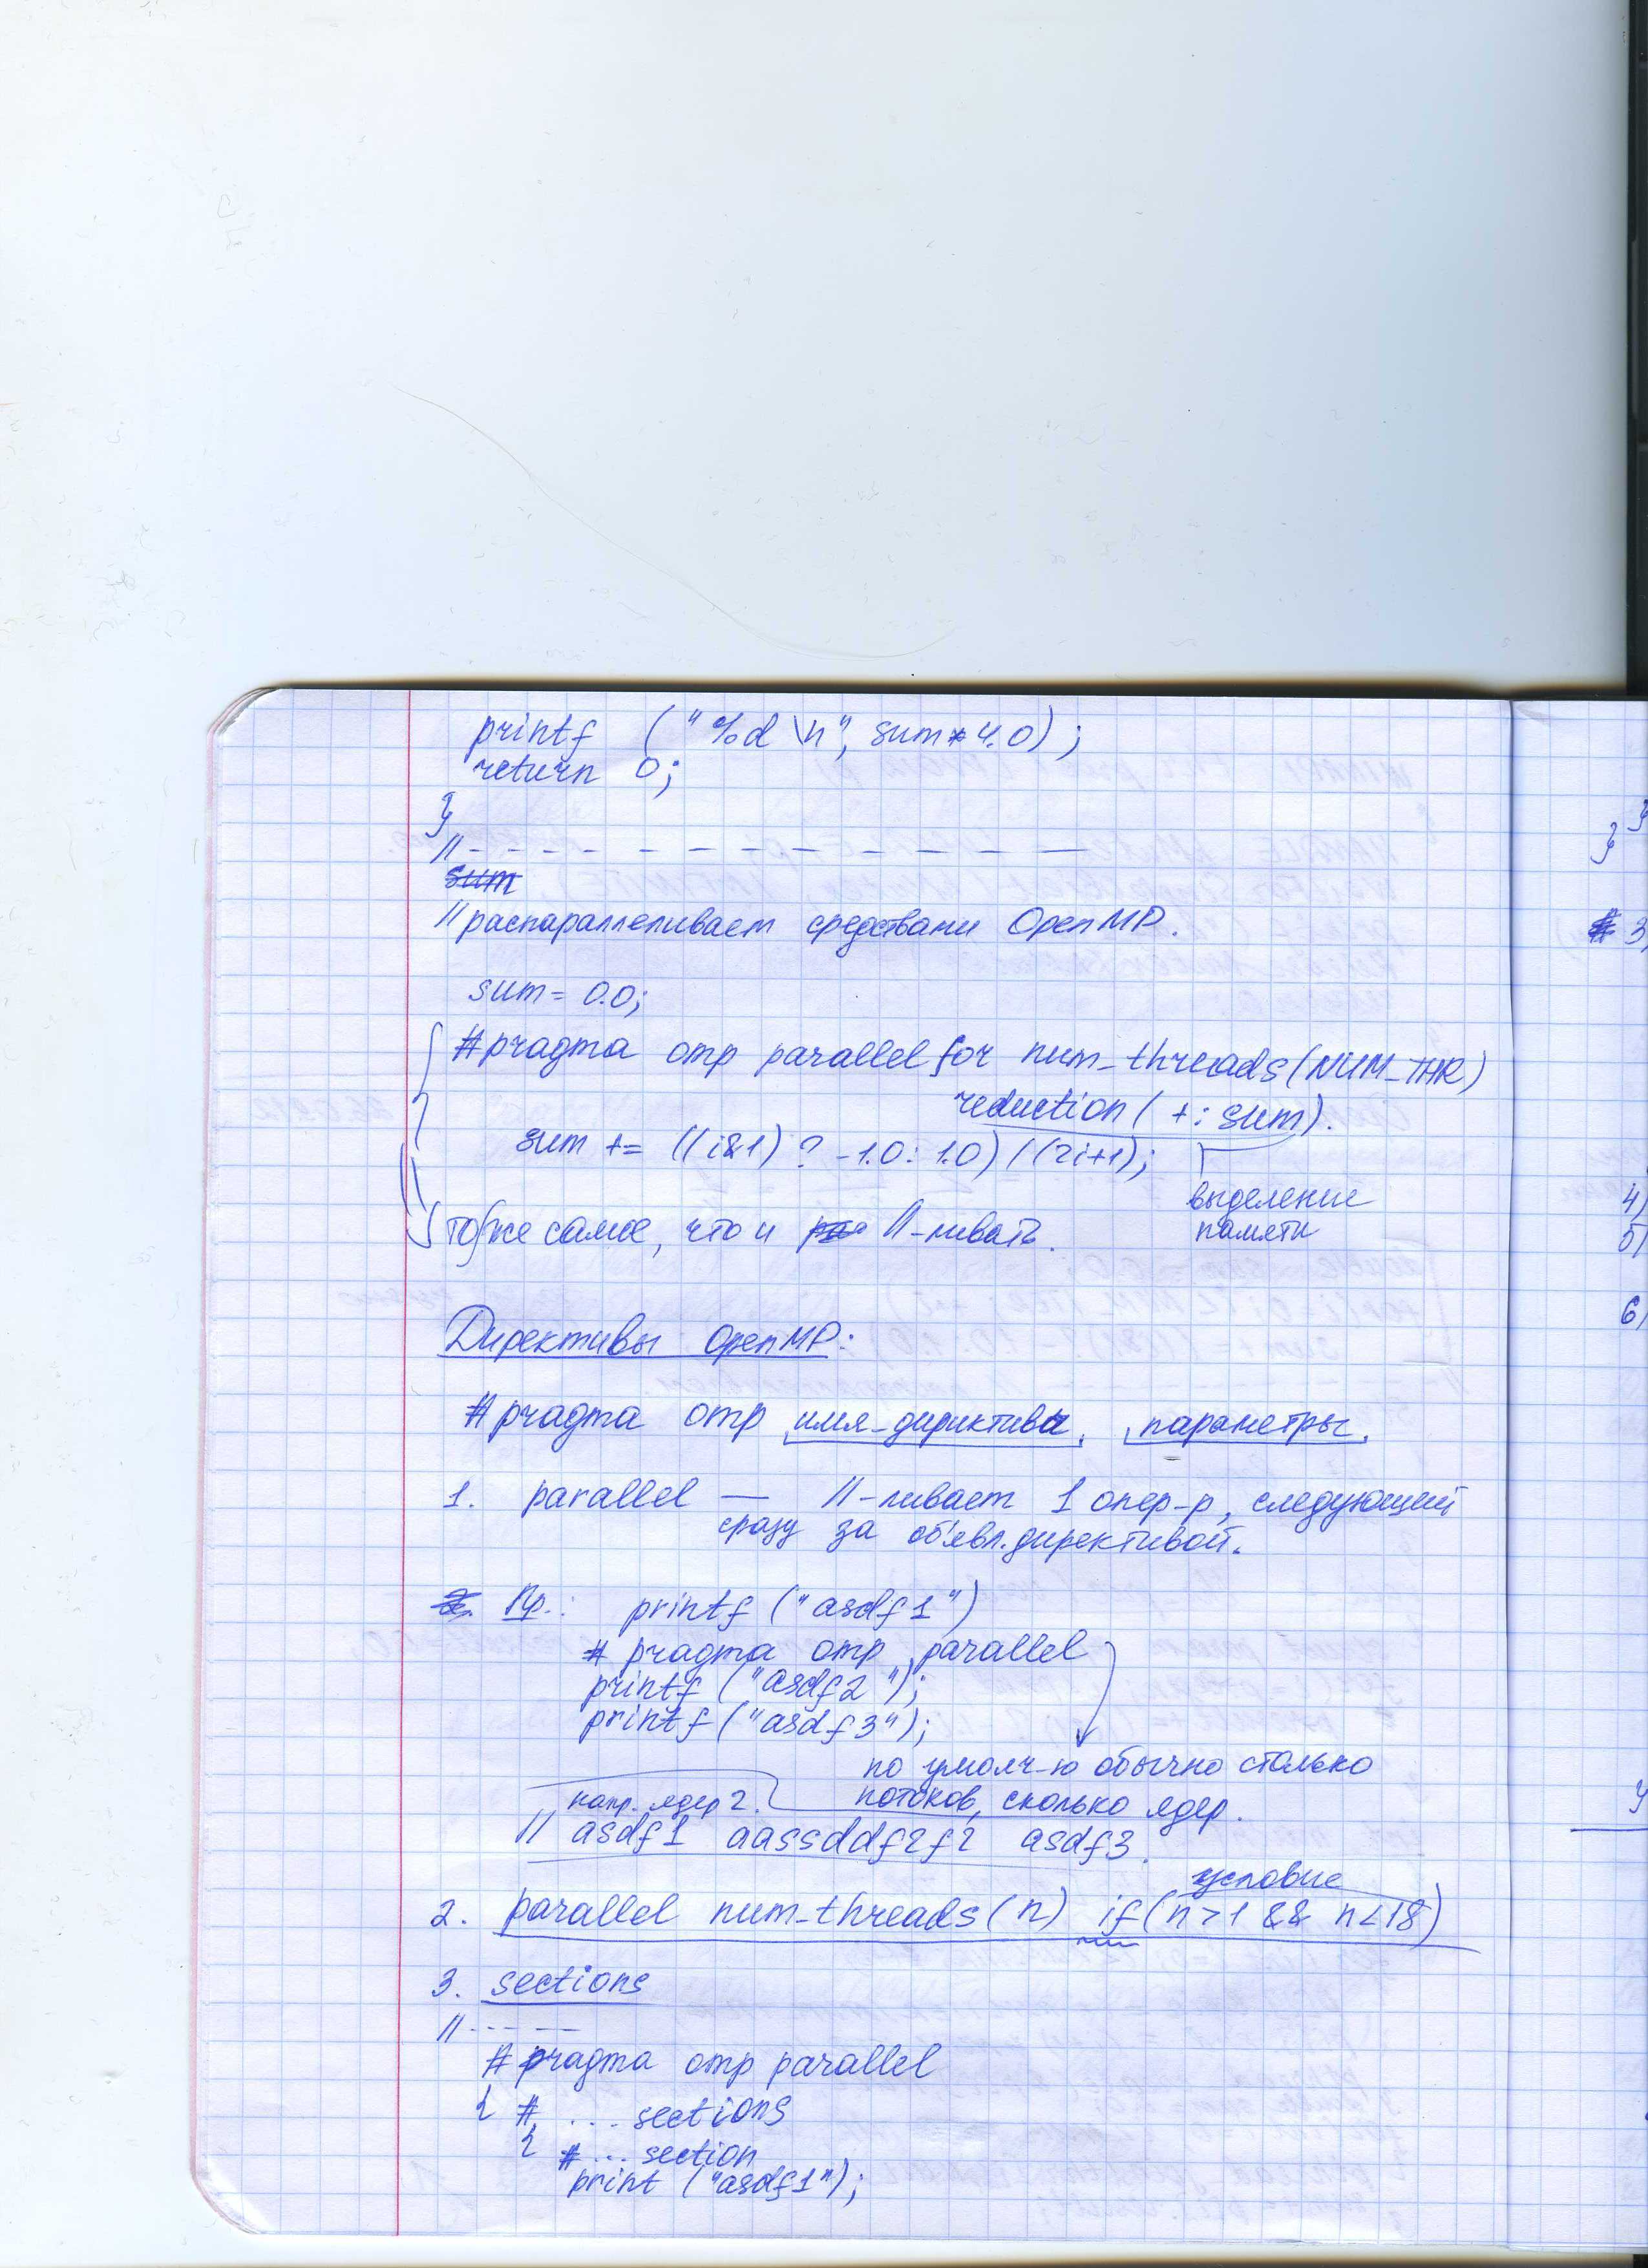 printf ("%d \n", sum*4.0);
return 0;
}
//- - - - - - - - - - - - - -
sum
//распараллеливает средствами OpenMP.
sum = 0.0;
#pragma omp parallel for num_threads(NUM_THR)
reduction(+:sum).
sum += ((i&1) ? -1.0 : 1.0) / (2i+1);
выделение
памяти
то же самое, что и //-ливать.
Директивы OpenMP:
#pragma omp имя_дириктивы, параметры,
1. parallel — //-ливает 1 опер-р, следующий
сразу за объявл. директивой.
2. Пр.: printf ("asdf1")
# pragma omp parallel
printf ("asdf2");
printf ("asdf3");
по умолч-ю обычно столько
потоков, сколько ядер.
напр. ядер 2.
// asdf1 aassddf2f2 asdf3.
условие
2. parallel num_threads(n) if(n>1 && n<18)
3. sections
//-----
#pragma omp parallel
{ # ... sections
{ # ... section
print ("asdf1");
}
}
# 3
4)
5)
6)